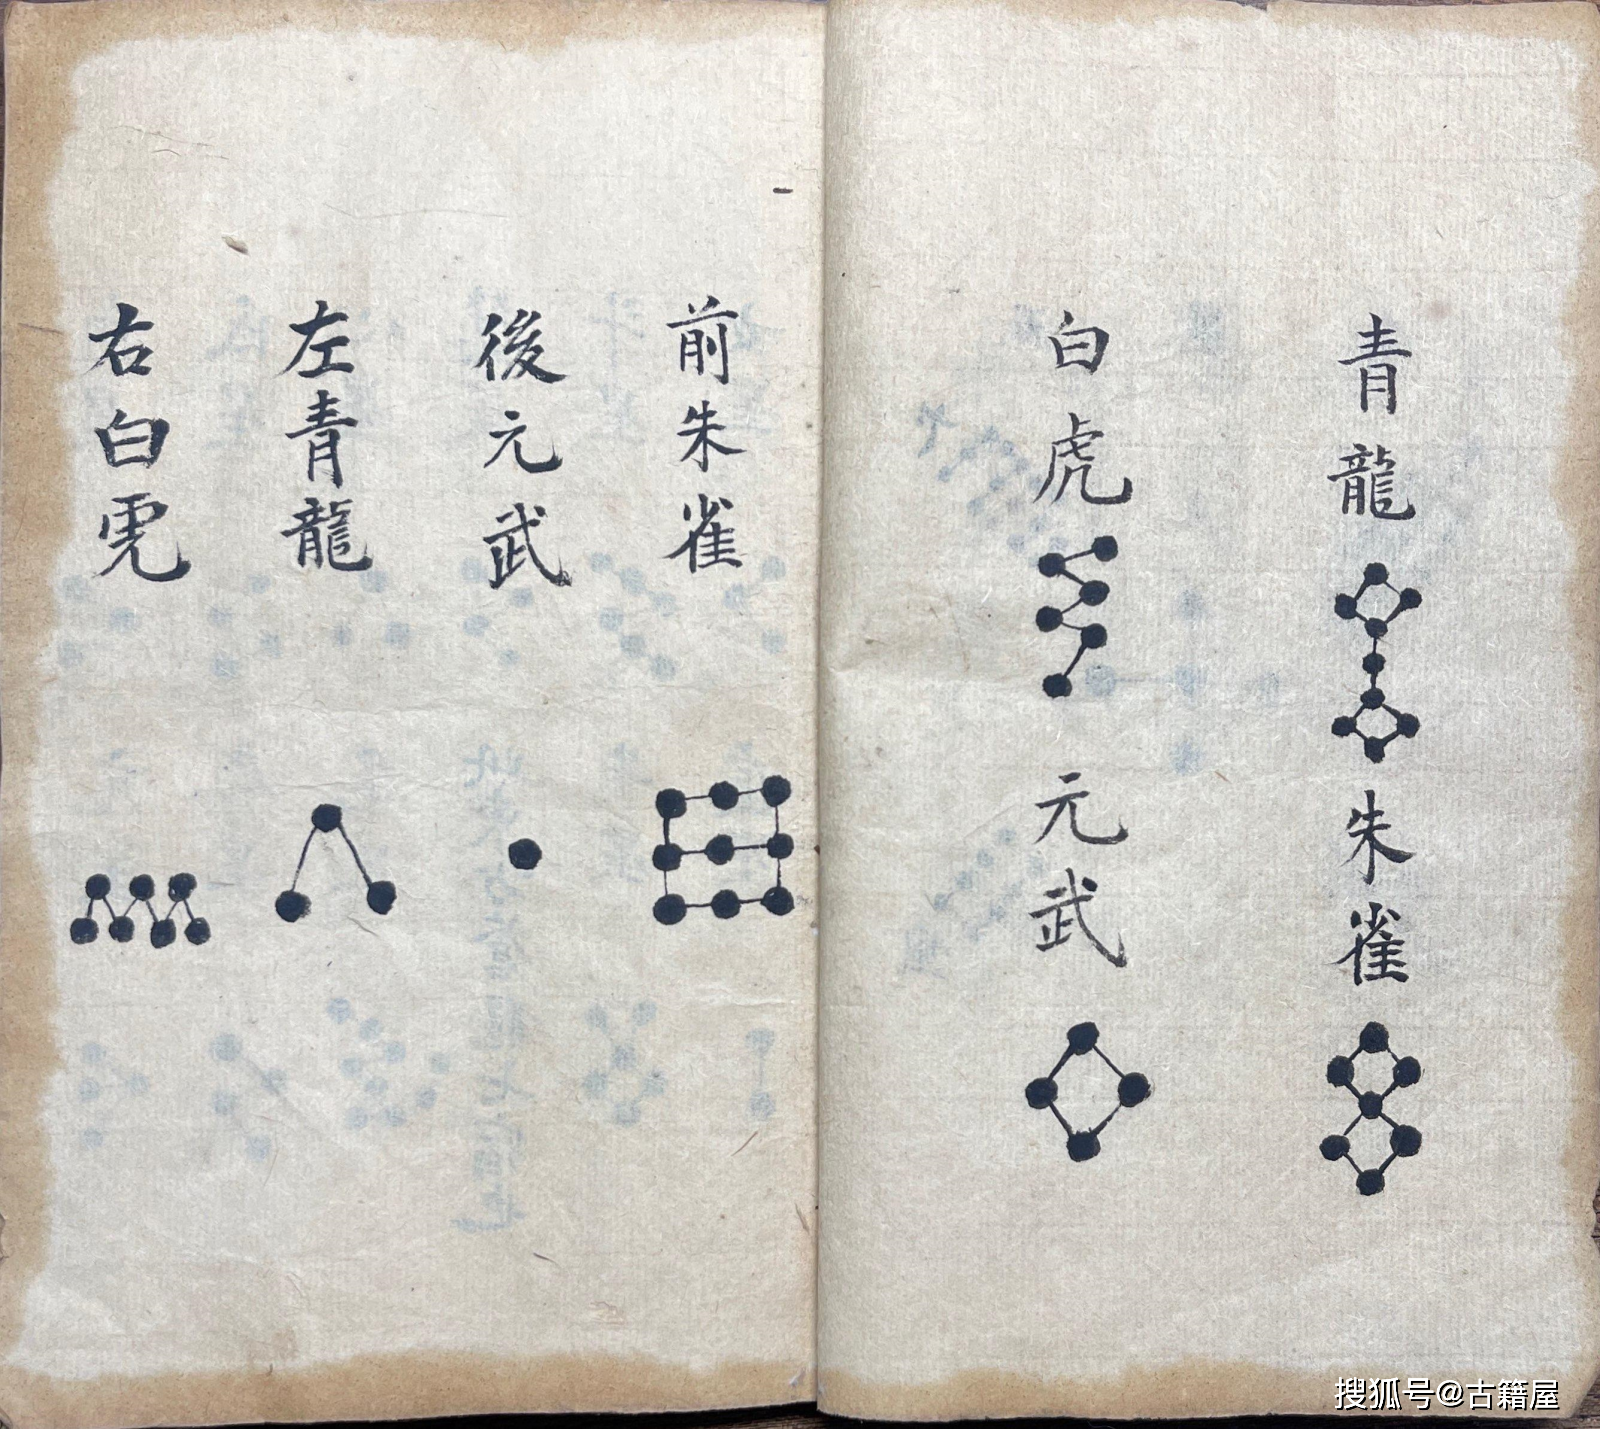 青龍 朱雀
白虎 元武
前朱雀
後元武
左青龍
右白虎
搜狐号@古籍屋